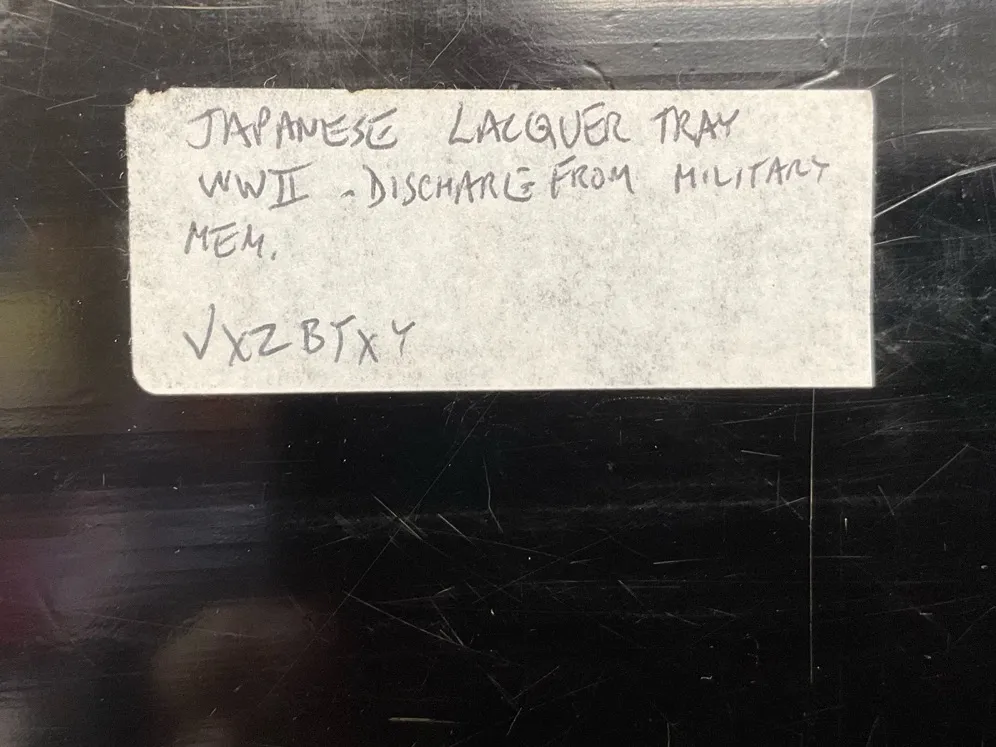 JAPANESE LACQUER TRAY
WWII - DISCHARGE FROM MILITARY
MEM.
VXZBTXY